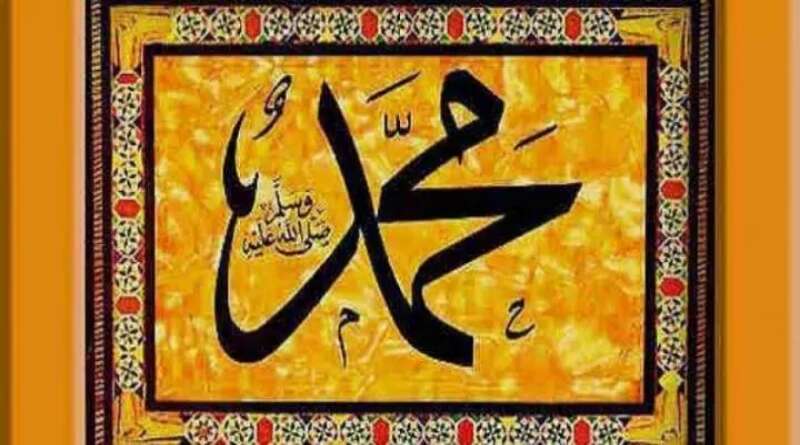 محمد
صلى الله عليه
وسلم
ح
م